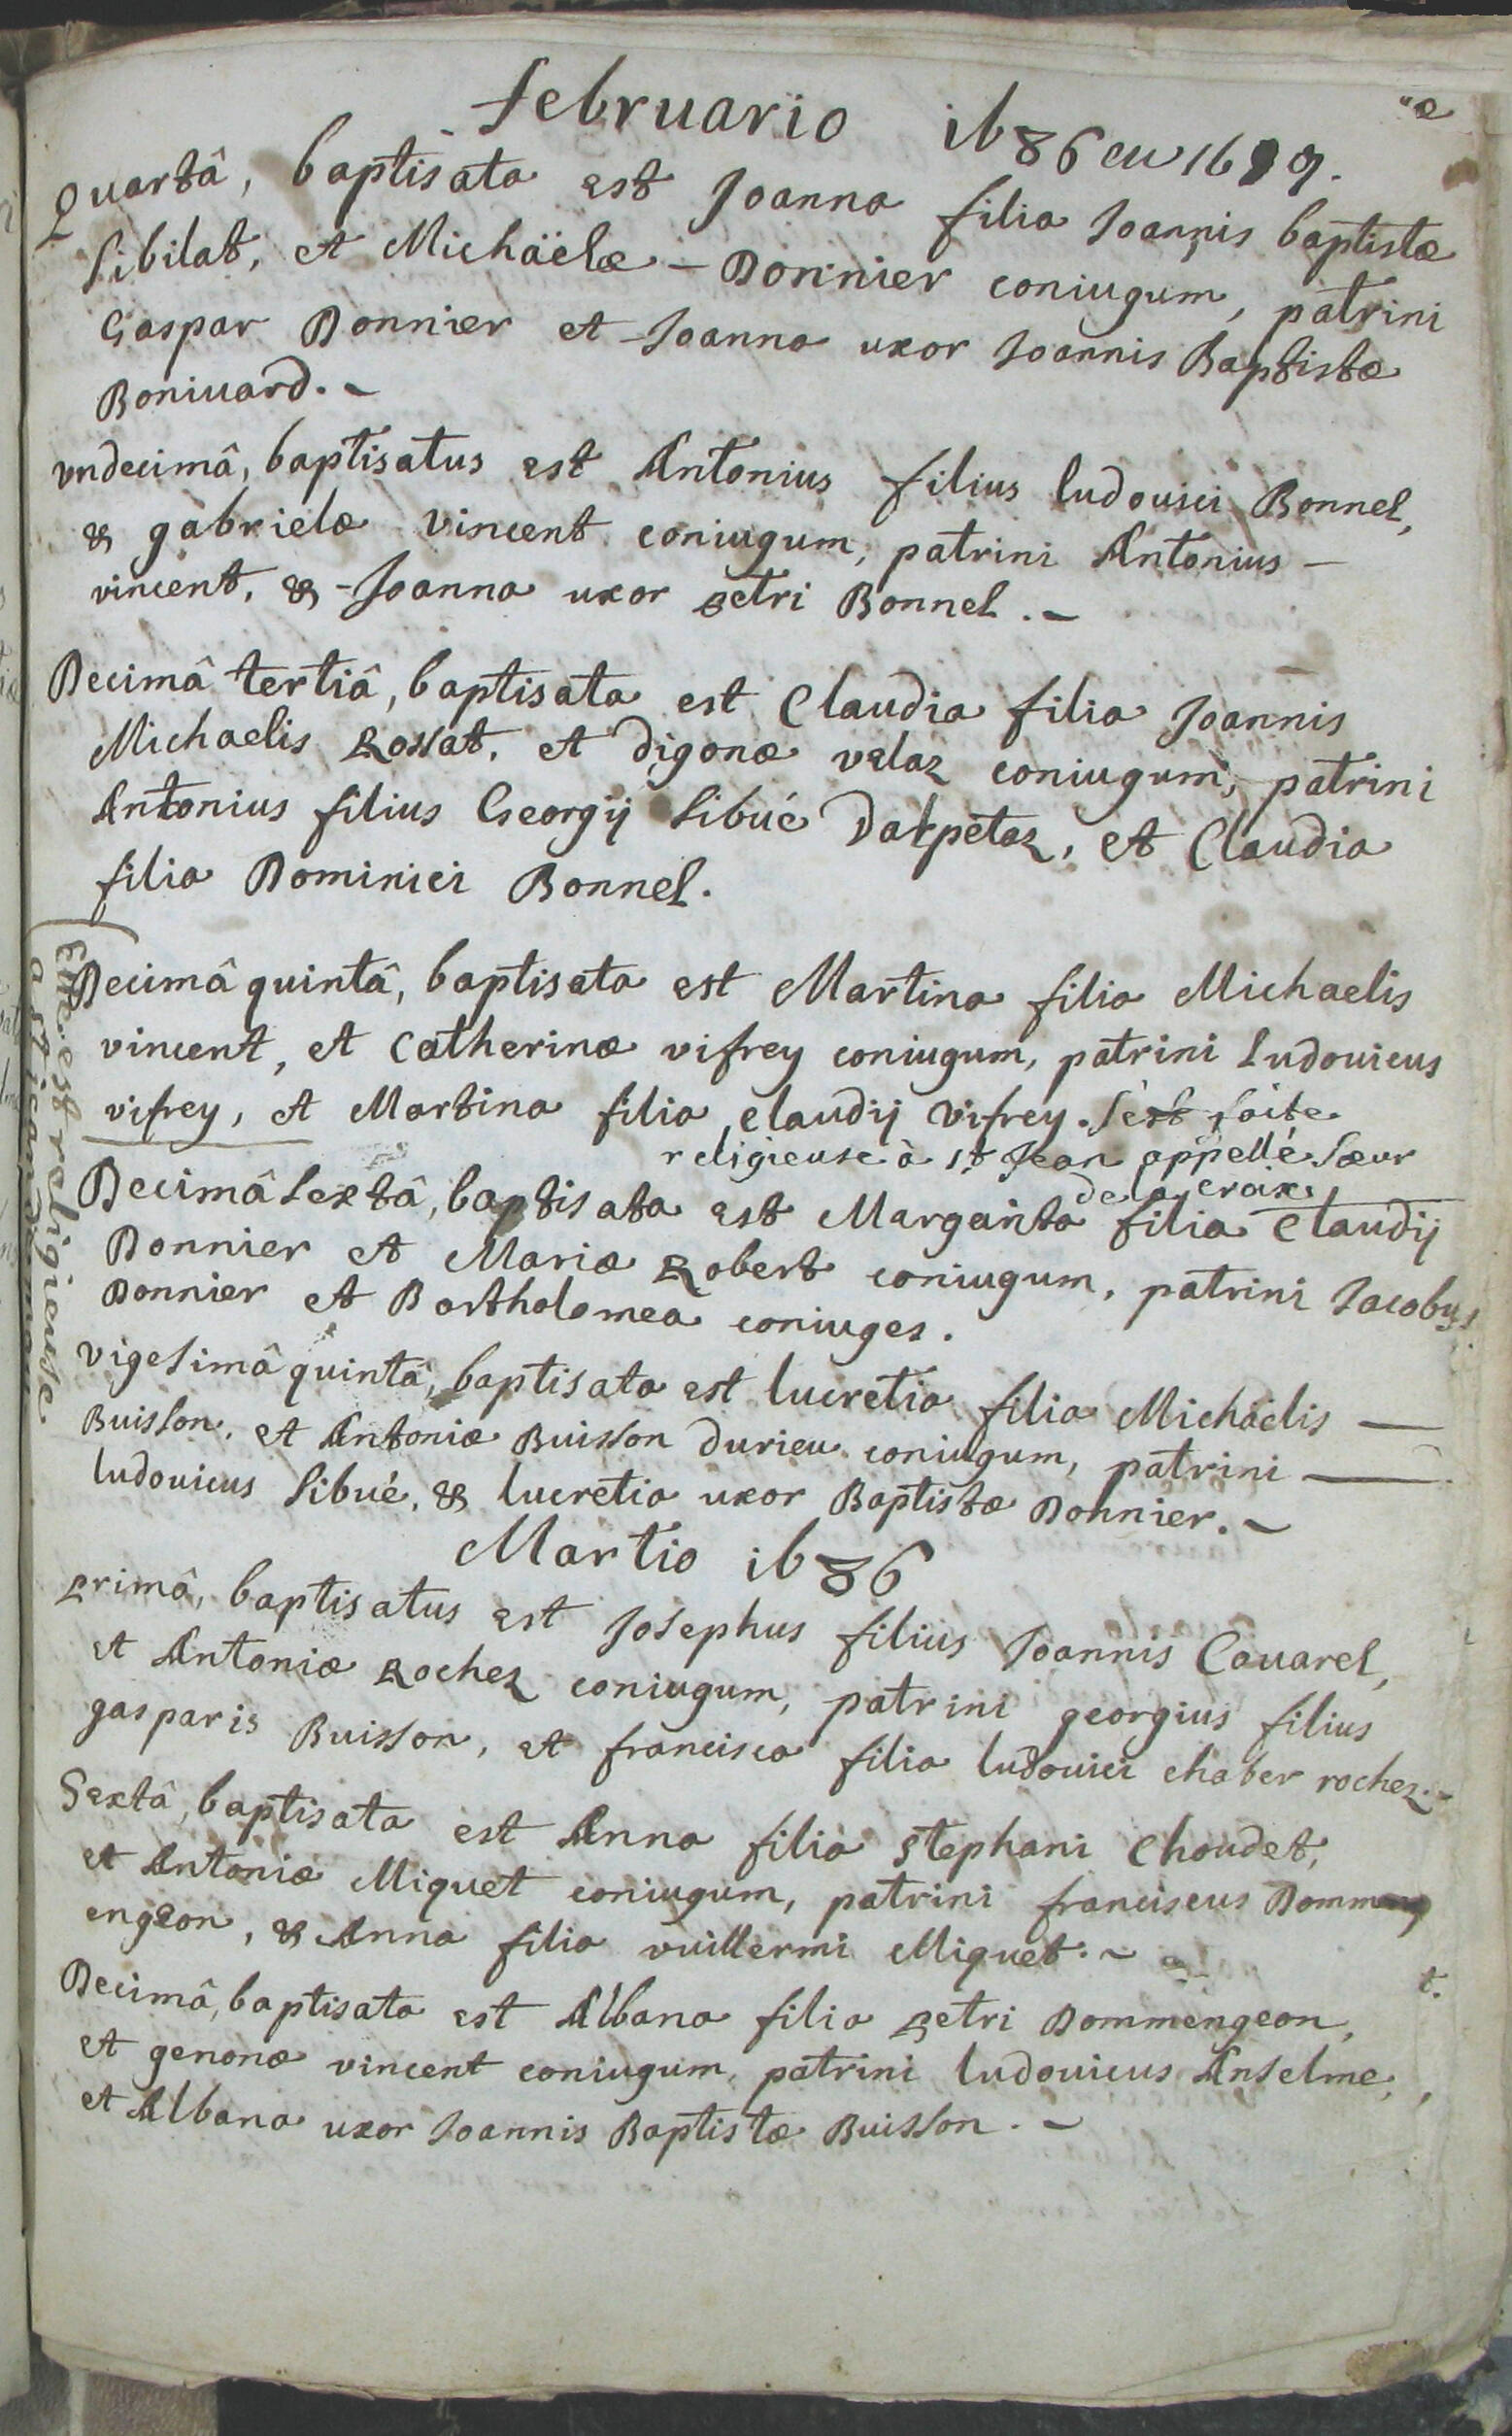 februario 1686 en 1689.
Quartâ, baptisata est Joanna filia Joannis baptistæ
Sibilat, et Michäelæ - Donnier coniugum, patrini
Gaspar Donnier et Joanna uxor Joannis Baptistæ
Boniuard. -
vndecimâ, baptisatus est Antonius filius ludouici Bonnel,
& gabrielæ vincent coniugum, patrini Antonius -
vincent, & - Joanna uxor Petri Bonnel. -
Decimâ tertiâ, baptisata est Claudia filia Joannis
Michaelis Rossat, et digonæ velaz coniugum, patrini
Antonius filius Georgij Sibué Dalpetaz, et Claudia
filia Dominici Bonnel.
Decimâ quintâ, baptisata est Martina filia Michaelis
vincent, et Catherinæ vifrey coniugum, patrini Ludouicus
vifrey, et Martina filia Claudij vifrey. S'est faite
religieuse à St Jean appellé Sœur
de la croix
Decimâ Sextâ, baptisata est Margarita filia Claudij
Donnier et Mariæ Robert coniugum, patrini Jacobus
Donnier et Bartholomea coniuges.
vigeSimâ quintâ, baptisata est lucretia filia Michaelis —
BuisSon, et Antoniæ Buisson durieu coniugum, patrini —
ludouicus Sibué, & lucretia uxor Baptistæ Donnier. -
Elle est religieuse
a St jean de
Martio 1686
Primâ, baptisatus est Josephus filius Joannis Couarel,
et Antoniæ Rochez coniugum, patrini georgius filius
gasparis Buisson, et francisca filia ludouici chaber rochez. -
Sextâ, baptisata est Anna filia Stephani Choudet,
et Antoniæ Miquet coniugum, patrini franciscus Domm
engeon, & Anna filia vuillermi Miquet. -
Decimâ, baptisata est Albana filia Petri Dommengeon,
et genonæ vincent coniugum, patrini ludouicus AnSelme,
et Albana uxor Joannis Baptistæ BuisSon. -